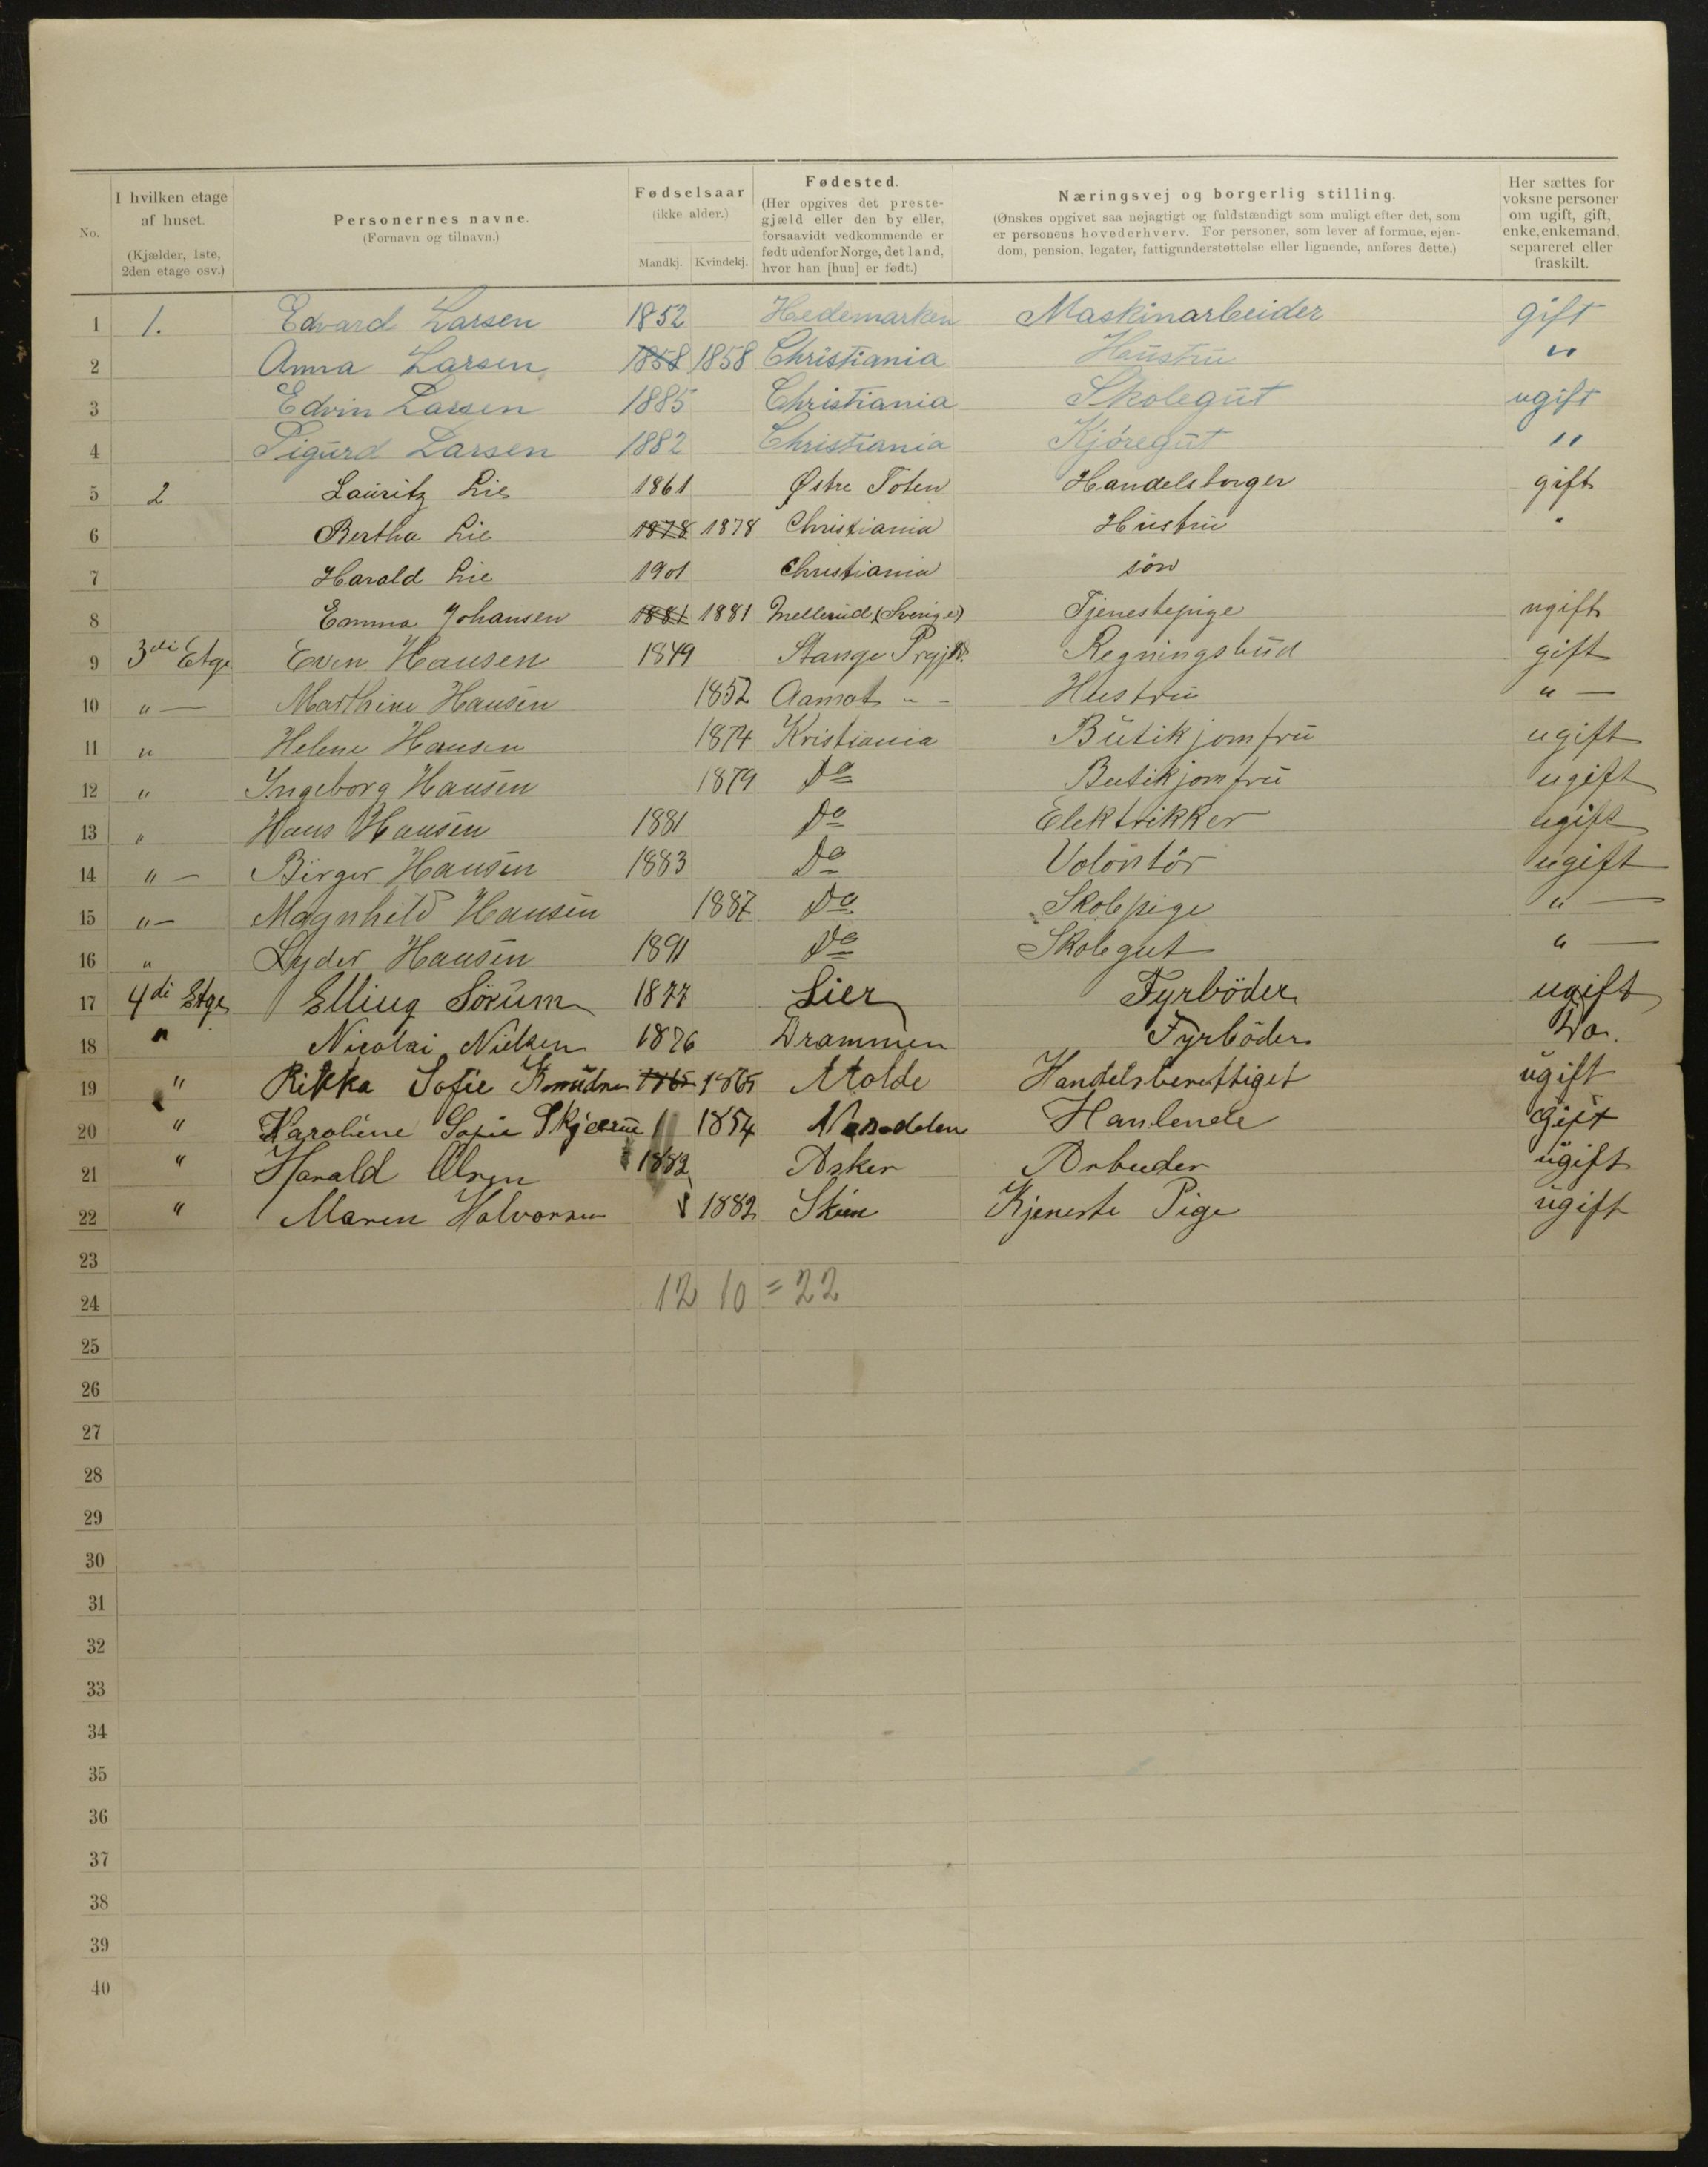 No.
I hvilken etage af huset. (Kjælder, 1ste, 2den etage osv.)
Personernes navne. (Fornavn og tilnavn.)
Fødselsaar (ikke alder.) Mandkj. Kvindekj.
Fødested. (Her opgives det prestegjæld eller den by eller, forsaavidt vedkommende er født udenfor Norge, det land, hvor han [hun] er født.)
Næringsvej og borgerlig stilling. (Ønskes opgivet saa nøjagtigt og fuldstændigt som muligt efter det, som er personens hovederhverv. For personer, som lever af formue, ejendom, pension, legater, fattigunderstøttelse eller lignende, anføres dette.)
Her sættes for voksne personer om ugift, gift, enke, enkemand, separeret eller fraskilt.
1 1. Edvard Larsen 1852 Hedemarken Maskinarbeider gift
2 Anna Larsen 1858 1858 Christiania Haustru "
3 Edvin Larsen 1885 Christiania Skolegut ugift
4 Sigurd Larsen 1882 Christiania Kjøregut "
5 2 Lauritz Lie 1861 Østre Toten Handelsborger gift
6 Bertha Lie 1878 1878 Christiania Hustru "
7 Harald Lie 1901 Christiania søn
8 Emma Johansen 1881 1881 Mellerud (Sverige) Tjenestepige ugift
9 3di Etge Even Hansen 1849 Stange Prgjld. Regningsbud gift
10 " — Marthine Hansen 1852 Aamot " - Hustru " —
11 " Helene Hansen 1874 Kristiania Butikjomfru ugift
12 " Ingeborg Hansen 1879 Do Butikjomfru ugift
13 " Hans Hansen 1881 Do Elektrikker ugift
14 " — Birger Hansen 1883 Do Volontör ugift
15 " — Magnhild Hansen 1887 Do Skolepige " —
16 " Lyder Hansen 1891 Do Skolegut " —
17 4di Etge Elling Sörum 1877 Lier Fyrböder ugift
18 " Nicolai Nielsen 1876 Drammen Fyrböder Do.
19 " Rikka Sofie Knudsen 1865 1865 Molde Handelsberettiget ugift
20 " Karoline Sofie 1854 gift
21 " Harald Olsen 1882 Asker Arbeider ugift
22 " Maren Halvorsen 1882 Skien Kjeneste Pige ugift
23
24 12 10 = 22
25
26
27
28
29
30
31
32
33
34
35
36
37
38
39
40